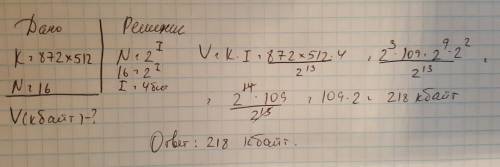 Дано
Решение
K = 872×512
N = 16
V(кбайт)-?
N = 2^I
16 = 2^I
I = 4бит
V = K · I = 872×512·4/2^13 = 2^3·109·2^9·2^2/2^13 =
= 2^14·109/2^13 = 109·2 = 218 кбайт
Ответ: 218 кбайт.